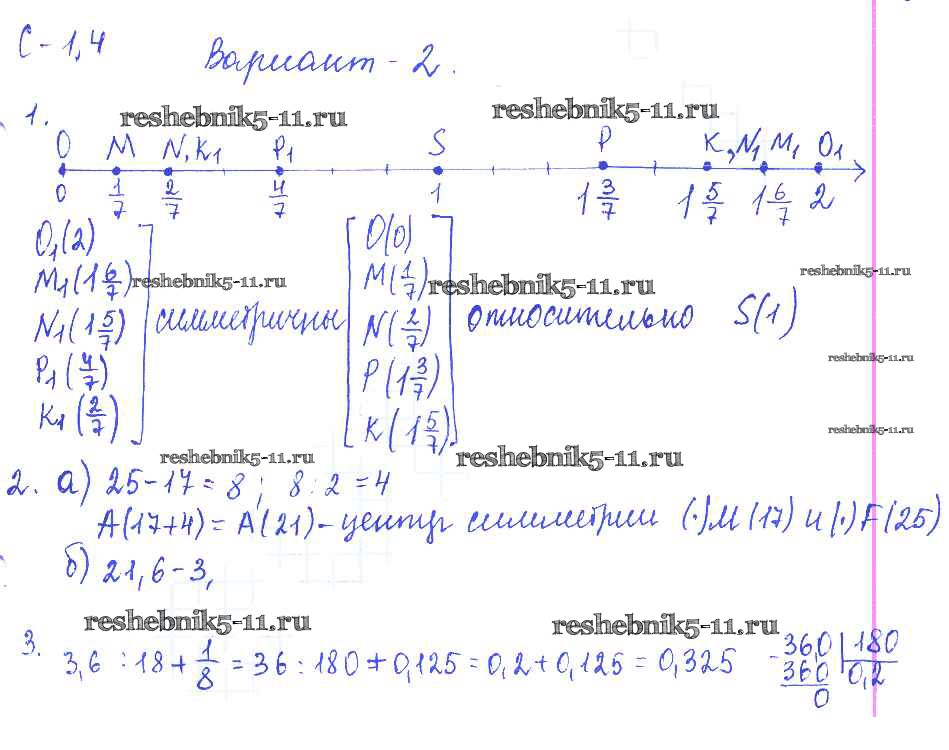 С-1,4
Вариант-2.
reshebnik5-11.ru reshebnik5-11.ru
1.
O M N,K1 P1 S P K, N1 M1 O1
0 1/7 2/7 4/7 1 1 3/7 1 5/7 1 6/7 2
O1(2) O(0)
M1(1 6/7) reshebnik5-11.ru M(1/7) reshebnik5-11.ru reshebnik5-11.ru
N1(1 5/7) симметричны N(2/7) относительно S(1)
P1(4/7) P(1 3/7) reshebnik5-11.ru
K1(2/7) K(1 5/7) reshebnik5-11.ru
reshebnik5-11.ru reshebnik5-11.ru
2. а) 25-17=8; 8:2=4
A(17+4)=A(21)-центр симметрии (·)M(17) и (·)F(25)
б) 21,6-3,
reshebnik5-11.ru reshebnik5-11.ru
3. 3,6:18+1/8=36:180+0,125=0,2+0,125=0,325
-36,0 180
360 0,2
0